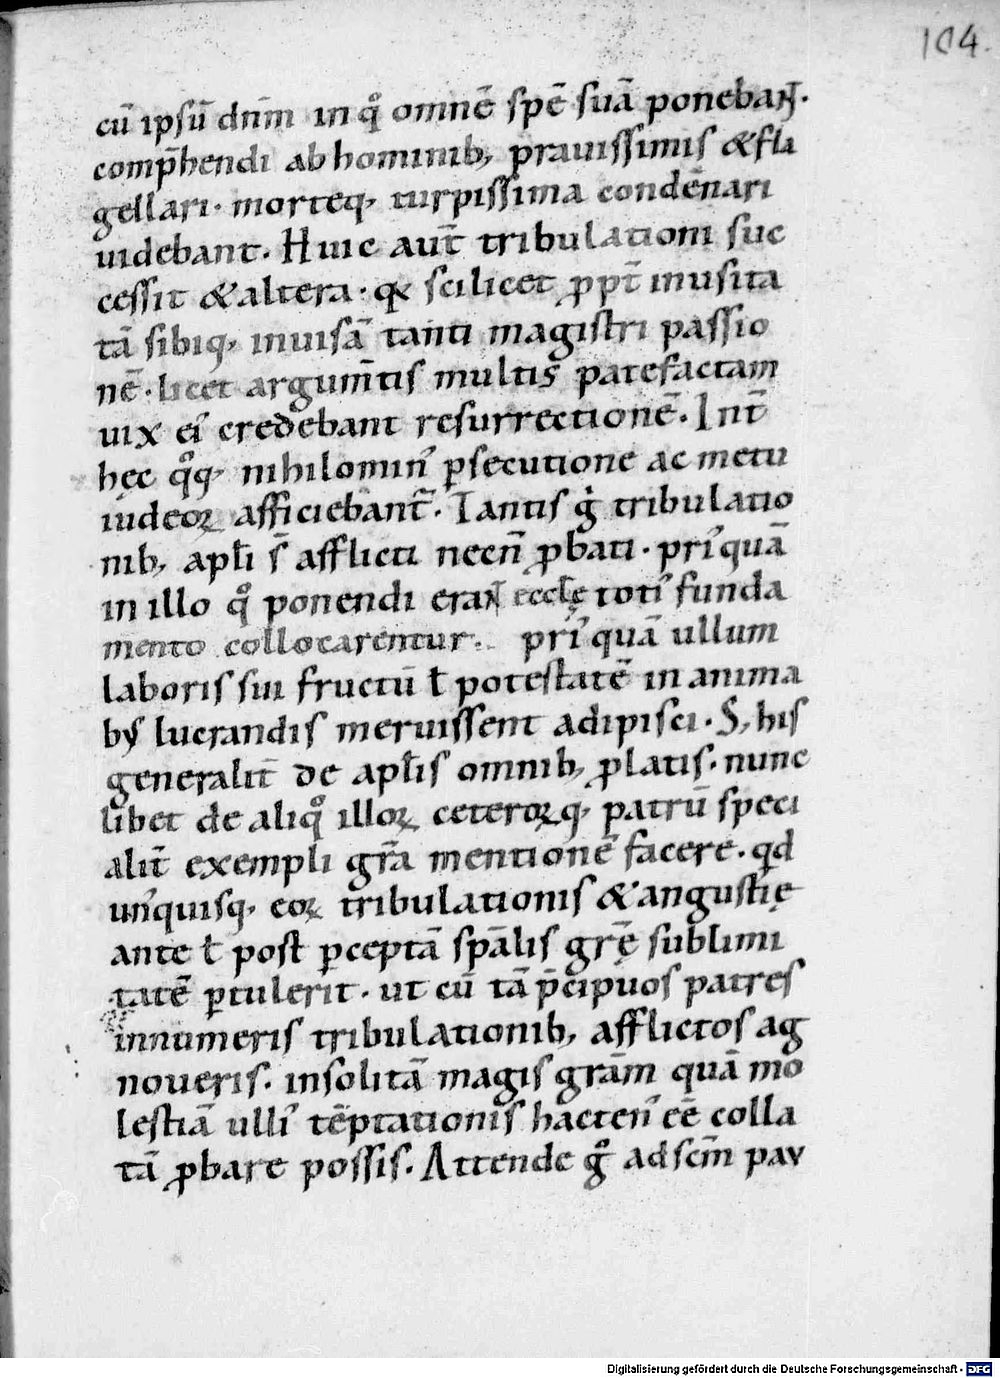 104.
cū ipsū dnm̄ in qͦ omnē spē suā ponebant.
comp̄hendi ab hominib; prauissimis & fla
gellari. morteq; turpissima condēnari
uidebant. Huic aut̄ tribulationi suc
cessit & altera. quę scilicet ꝓpt̄ inusita
tā sibiq; inuisā tanti magistri passio
nē. licet argum̄tis multis patefactam
uix ei᷒ credebant resurrectionē. Int̄
hęc qͦq; nihilomin᷒ ꝑsecutione ac metu
iudeoꝝ afficiebant᷑. Tantis gͥ tribulatio
nib; apłi s̄ afflicti necn̄ ꝓbati. pri᷒quā
in illo qͦ ponendi erant ecclę toti᷒ funda
mento collocarentur. pri᷒quā ullum
laboris sui fructū ł potestatē in anima
bꝰ lucrandis meruissent adipisci. S; his
generalit̄ de apłis omnib; ꝓlatis. nunc
libet de aliqͦ illoꝝ ceteroꝝq; patrū speci
alit̄ exempli grā mentionē facere. qd
un᷒quisq; eoꝝ tribulationis & angustię
ante ł post ꝑceptā spālis grę̄ sublimi
tatē ꝑtulerit. ut cū tā p̄cipuos patres
innumeris tribulationib; afflictos ag
noueris. insolitā magis grām quā mo
lestiā ulli᷒ tēptationis hacten᷒ eē colla
tā ꝓbare possis. Attende gͦ ad scm̄ pau
Digitalisierung gefördert durch die Deutsche Forschungsgemeinschaft - DFG